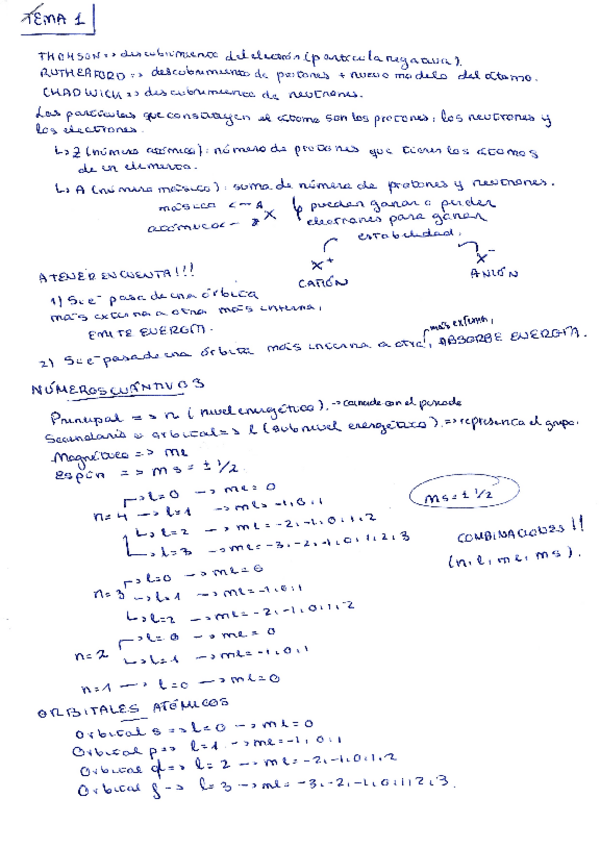 TEMA 1
THOMSON => descubrimiento del electrón (partícula negativa).
RUTHERFORD => descubrimiento de protones + nuevo modelo del átomo.
CHADWICK => descubrimiento de neutrones.
Las partículas que constituyen el átomo son los protones, los neutrones y
los electrones.
↳ Z (número atómico): número de protones que tienen los átomos
de un elemento.
↳ A (número másico): suma de número de protones y neutrones.
másico <— A
atómico <— Z X
↳ pueden ganar o perder
electrones para ganar
estabilidad.
X+ X-
CATIÓN ANIÓN
A TENER EN CUENTA!!!
1) Si e- pasa de una órbita
más externa a otra más interna,
EMITE ENERGÍA.
2) Si e- pasa de una órbita más interna a otra más externa, ABSORBE ENERGÍA.
NÚMEROS CUÁNTICOS
Principal => n (nivel energético). -> coincide con el periodo
Secundario u orbital => l (subnivel energético). => representa el grupo.
Magnético => ml
Espín => ms = ±1/2
n=4 -> l=0 -> ml=0
-> l=1 -> ml=-1,0,1
-> l=2 -> ml=-2,-1,0,1,2
-> l=3 -> ml=-3,-2,-1,0,1,2,3
ms = ±1/2
COMBINACIONES!!
(n, l, ml, ms).
n=3 -> l=0 -> ml=0
-> l=1 -> ml=-1,0,1
-> l=2 -> ml=-2,-1,0,1,2
n=2 -> l=0 -> ml=0
-> l=1 -> ml=-1,0,1
n=1 -> l=0 -> ml=0
ORBITALES ATÓMICOS
Orbital s => l=0 -> ml=0
Orbital p => l=1 -> ml=-1,0,1
Orbital d => l=2 -> ml=-2,-1,0,1,2
Orbital f -> l=3 -> ml=-3,-2,-1,0,1,2,3.